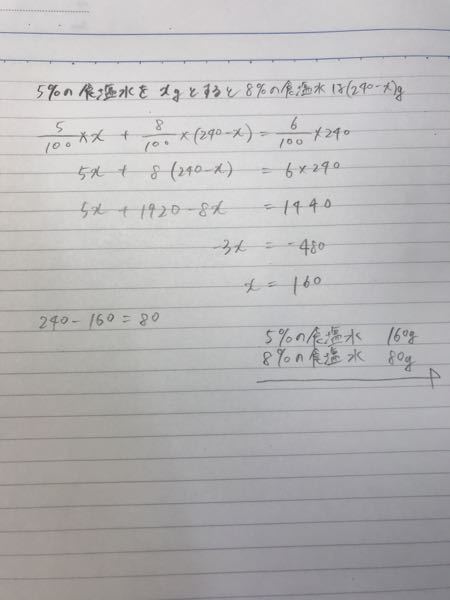 5%の食塩水をxgとすると8%の食塩水は(240-x)g
5/100 × x + 8/100 × (240-x) = 6/100 × 240
5x + 8(240-x) = 6×240
5x + 1920 - 8x = 1440
-3x = -480
x = 160
240-160=80
5%の食塩水 160g
8%の食塩水 80g